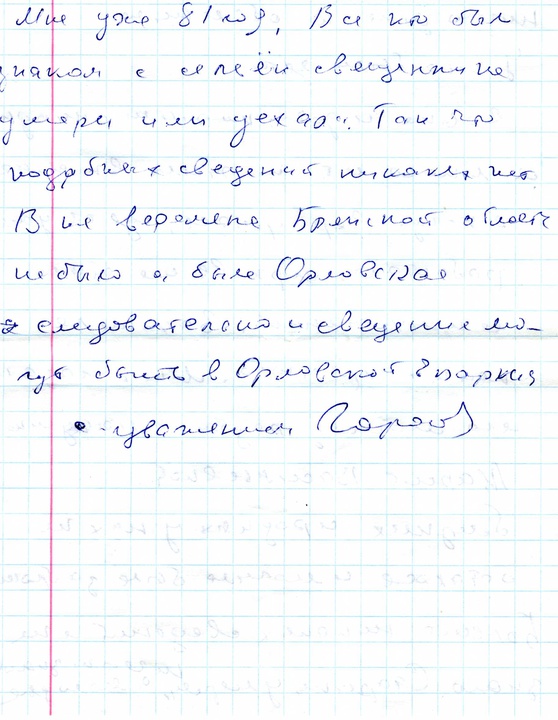 Мне уже 81 год, Все кто был
знаком с семьёй священника
умерли или уехали. Так что
подробных сведений никаких нет.
В их времена Брянской область
не было а была Орловская
следовательно и сведения мо-
гут быть в Орловской епархии
с уважением